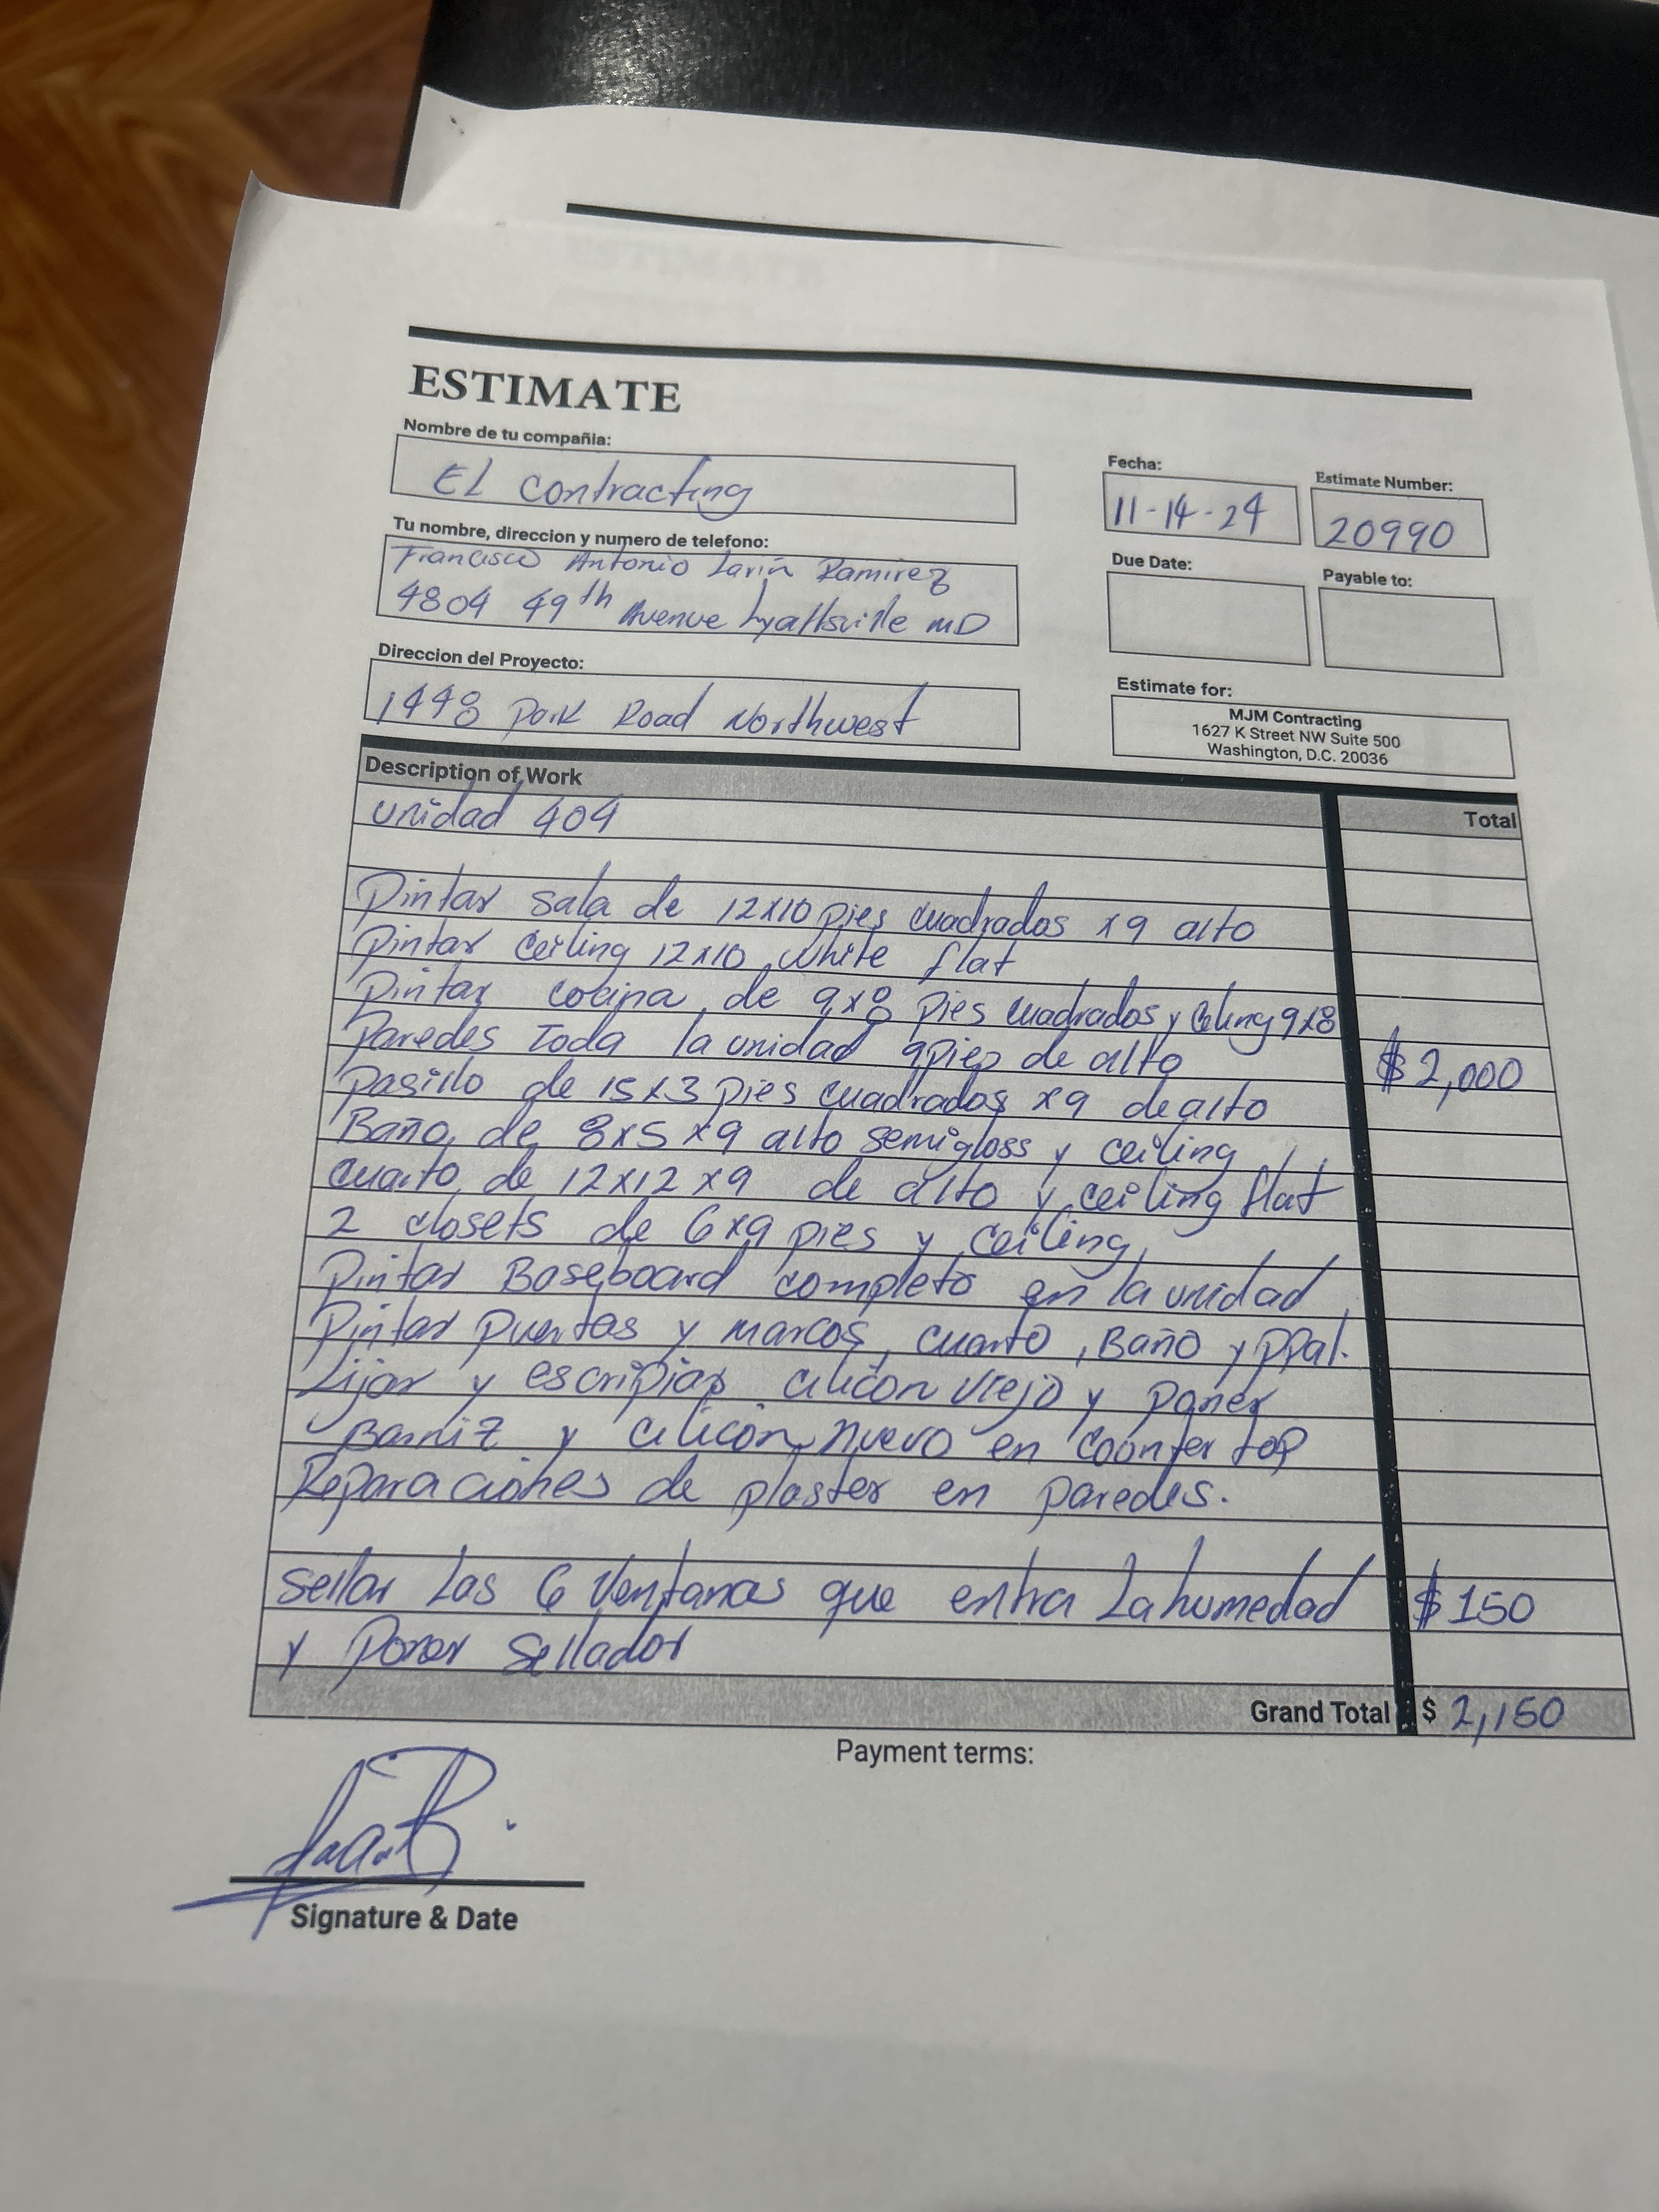 ESTIMATE
Nombre de tu compañia:
EL contracting
Fecha:
11-14-24
Estimate Number:
20990
Tu nombre, direccion y numero de telefono:
Francisco Antonio Larín Ramirez
4804 49th Avenue hyattsville MD
Due Date:
Payable to:
Direccion del Proyecto:
1448 Park Road Northwest
Estimate for:
MJM Contracting
1627 K Street NW Suite 500
Washington, D.C. 20036
Description of Work
Total
unidad 404
Pintar sala de 12x10 pies cuadrados x9 alto
Pintar ceiling 12x10 white flat
Pintar cocina de 9x8 pies cuadrados y Celing 9x8
Paredes Toda la unidad 9 pies de alto
$2,000
Pasillo de 15x3 pies cuadrados x9 de alto
Baño de 8x5x9 alto semigloss y ceiling
cuarto de 12x12x9 de alto y ceiling flat
2 closets de 6x9 pies y ceiling
Pintar Baseboard completo en la unidad
Pintar Puertas y marcos, cuarto, Baño y ppal.
Lijar y escripiar cilicon viejo y poner
Barniz y cilicon nuevo en counter top
Reparaciones de plaster en paredes.
Sellar Las 6 Ventanas que entra La humedad
$150
y Poner Sellador
Grand Total $ 2,150
Payment terms:
Signature & Date